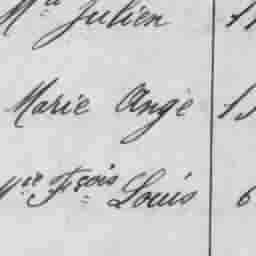 Mie Julien
Marie Ange
Mie Fçois Louis 6